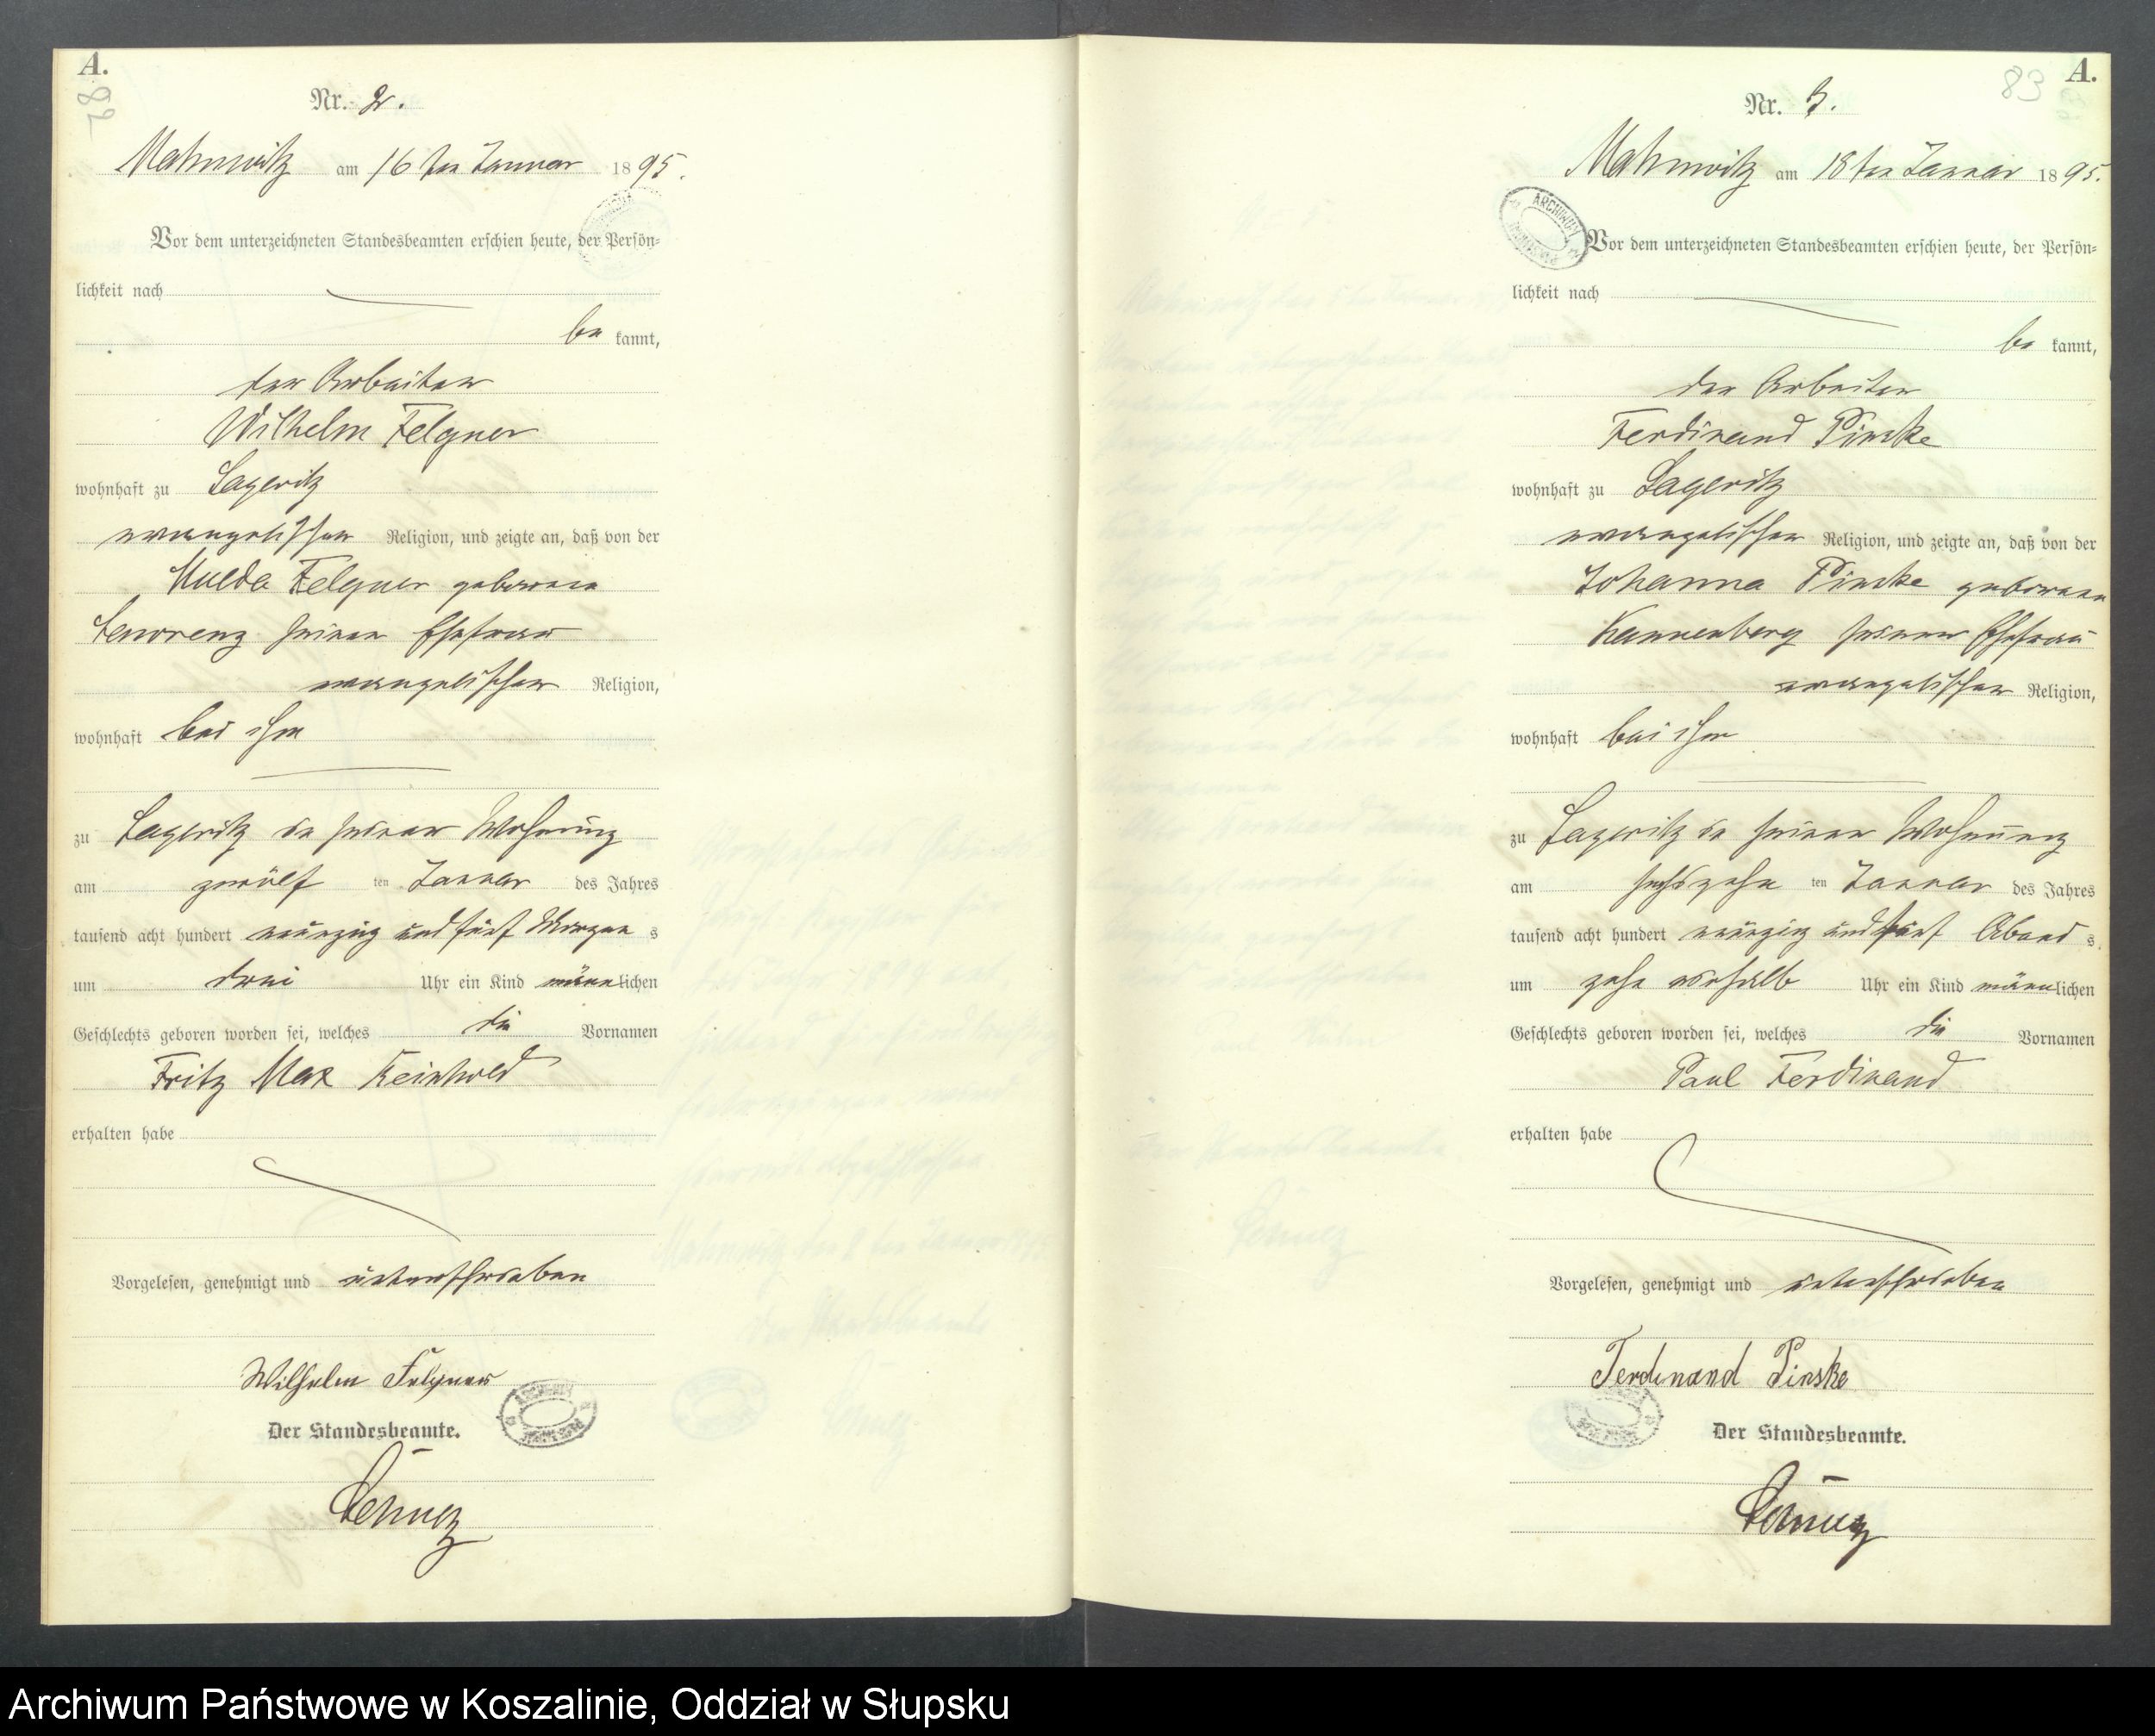 A.
82
Nr. 2.
Mahnwitz am 16ten Januar 1895.
Vor dem unterzeichneten Standesbeamten erschien heute, der Persön-
lichkeit nach
bekannt,
der Arbeiter
Wilhelm Felgner
wohnhaft zu Lageritz
evangelischer Religion, und zeigte an, daß von der
Hulda Felgner geborene
Lawrenz seiner Ehefrau
evangelischer Religion,
wohnhaft bei ihm
zu Lageritz in seiner Wohnung
am zwölf ten Januar des Jahres
tausend acht hundert neunzig und fünf Morgens
um drei Uhr ein Kind männlichen
Geschlechts geboren worden sei, welches die Vornamen
Fritz Max Reinhold
erhalten habe
Vorgelesen, genehmigt und unterschrieben
Wilhelm Felgner
Der Standesbeamte.
A.
83
Nr. 3.
Mahnwitz am 18ten Januar 1895.
ARCHIWUM
Vor dem unterzeichneten Standesbeamten erschien heute, der Persön-
lichkeit nach
bekannt,
der Arbeiter
Ferdinand Pinske
wohnhaft zu Lageritz
evangelischer Religion, und zeigte an, daß von der
Johanna Pinske geborene
Kannenberg seiner Ehefrau
evangelischer Religion,
wohnhaft bei ihm
zu Lageritz in seiner Wohnung
am sechszehn ten Januar des Jahres
tausend acht hundert neunzig und fünf Abends
um zehn einhalb Uhr ein Kind männlichen
Geschlechts geboren worden sei, welches die Vornamen
Paul Ferdinand
erhalten habe
Vorgelesen, genehmigt und unterschrieben
Ferdinand Pinske
Der Standesbeamte.
Archiwum Państwowe w Koszalinie, Oddział w Słupsku